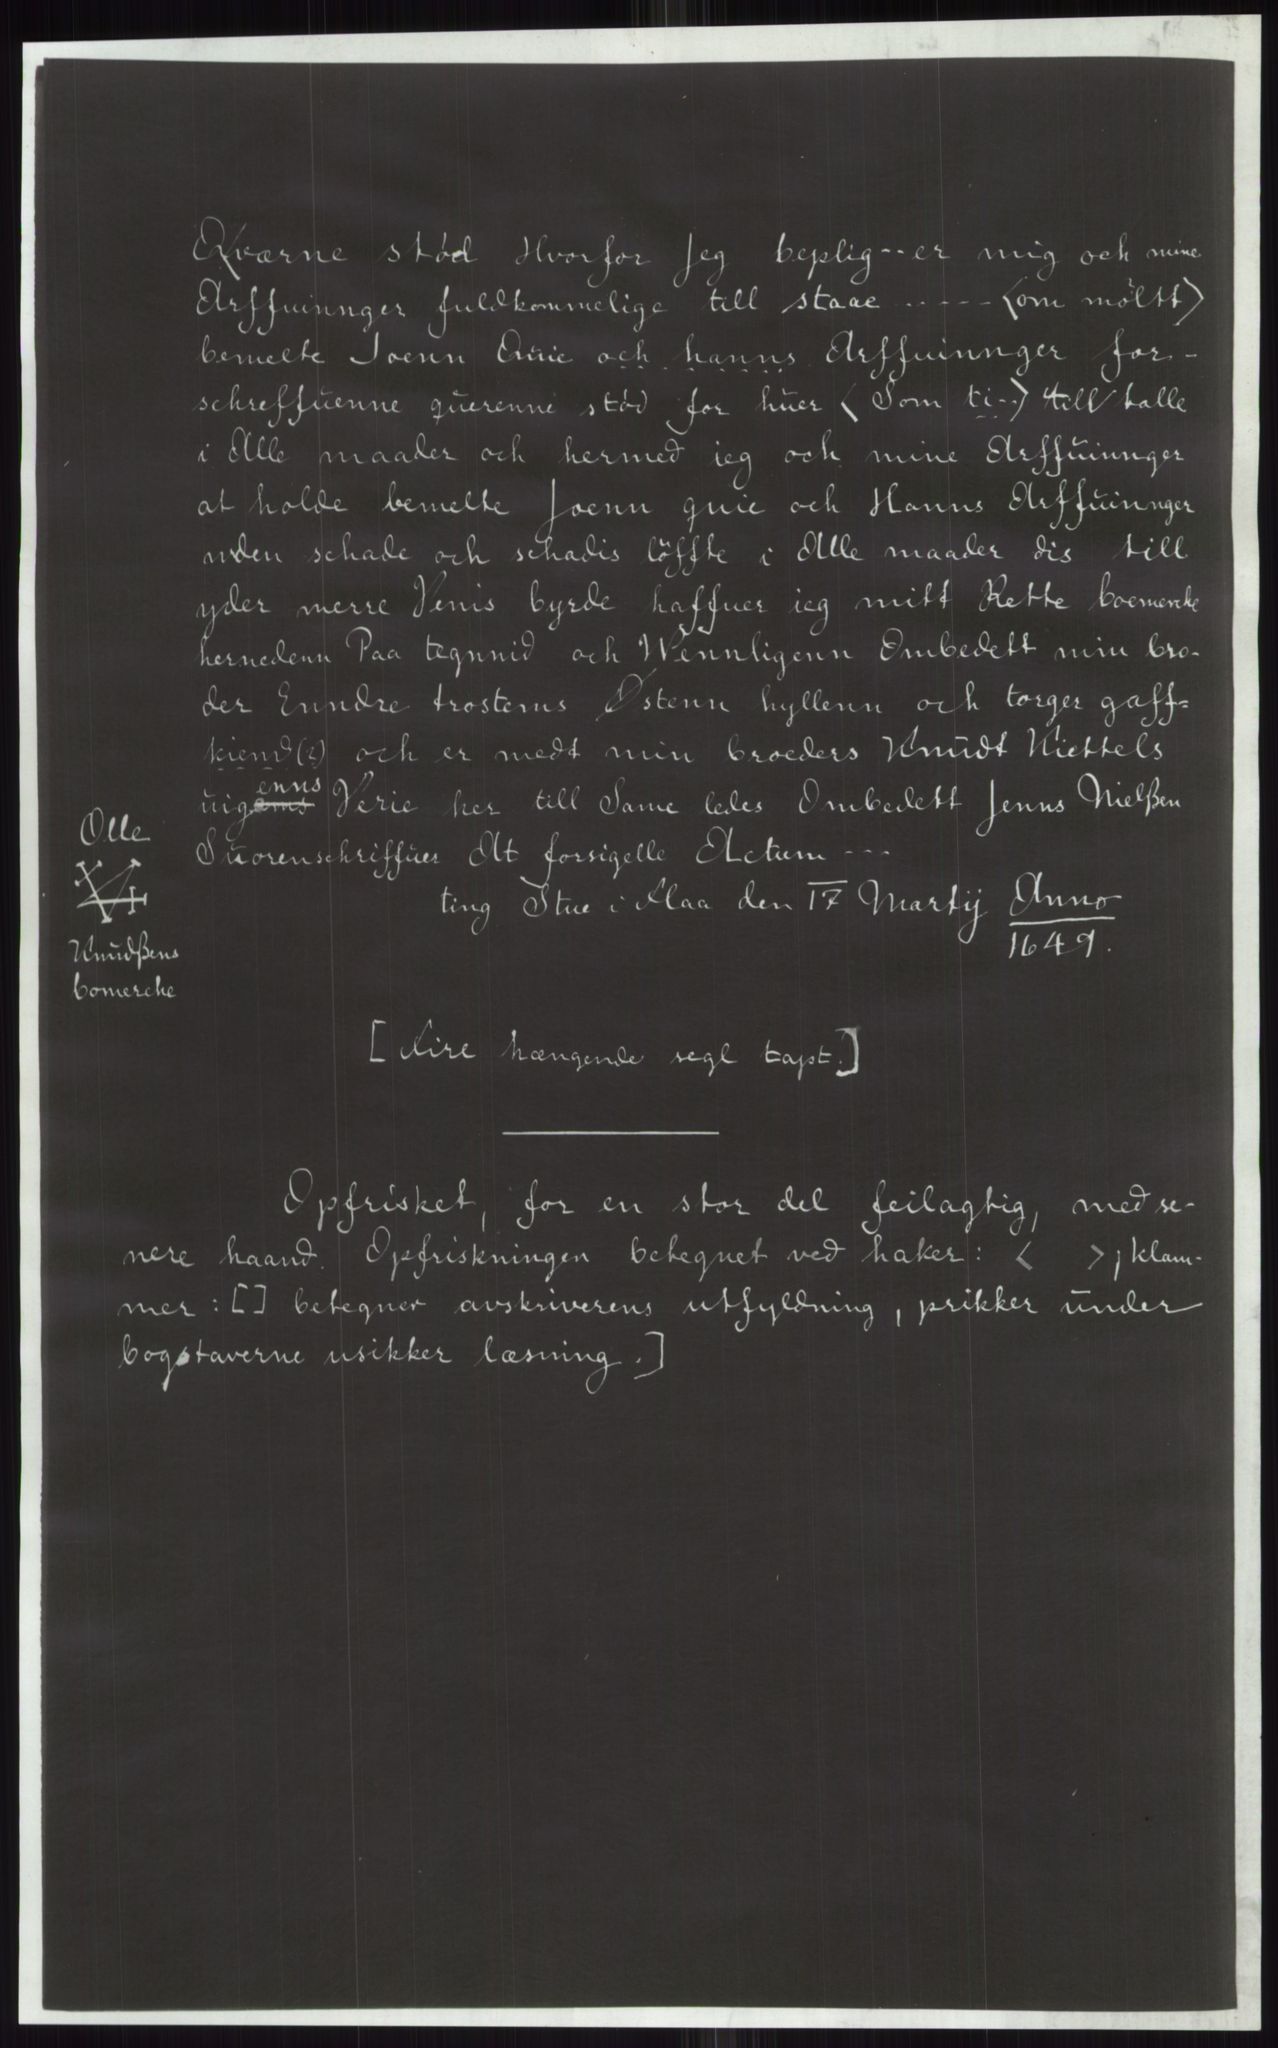 Qværne stød Hvorfor Jeg beplig--er mig och mine
Arffuinnger fuldkommelige till staae ------ <om möltt>
bemelte Joenn Quie och hanns Arffuinnger for-
schreffuenne querenne stød for huer <Som ti--> till talle
i Alle maader och hermed ieg och mine Arffuinnger
at holde bemelte Joenn quie och Hanns Arffuinnger
uden schade och schadis löffte i Alle maader dis till
yder merre Venis byrde haffuer ieg mitt Rette boemercke
hernedenn Paa tegnnid och Wennligenn Ombedett min bro-
der Enndre trostems Østenn hyllenn och torger gaff-
kiend(?) och er medt min broeders Knudt Kiettels
enns
uigems Verie her till Same ledes Ombedett Jenns Nielßen
Suorenschriffuer At forsigelle Actum ---
ting Stue i Flaa den 17 Martij Anno
1649.
Olle
Knudßens
bomercke
[Fire hængende segl tapt.]
Opfrisket, for en stor del feilagtig, med se-
nere haand. Opfriskningen betegnet ved haker: < >; klam-
mer: [] betegner avskriverens utfyldning, prikker under
bogstaverne usikker læsning.]